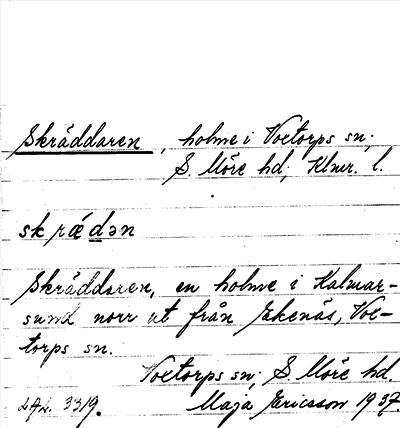 Skräddaren, holme i Voxtorps sn;
S. Möre hd; Klmr. l.
skrǽdən
Skräddaren, en holme i Kalmar-
sund norr ut från Ekenäs, Vox-
torps sn.
Voxtorps sn; S Möre hd.
Maja Ericsson 1937.
3319.